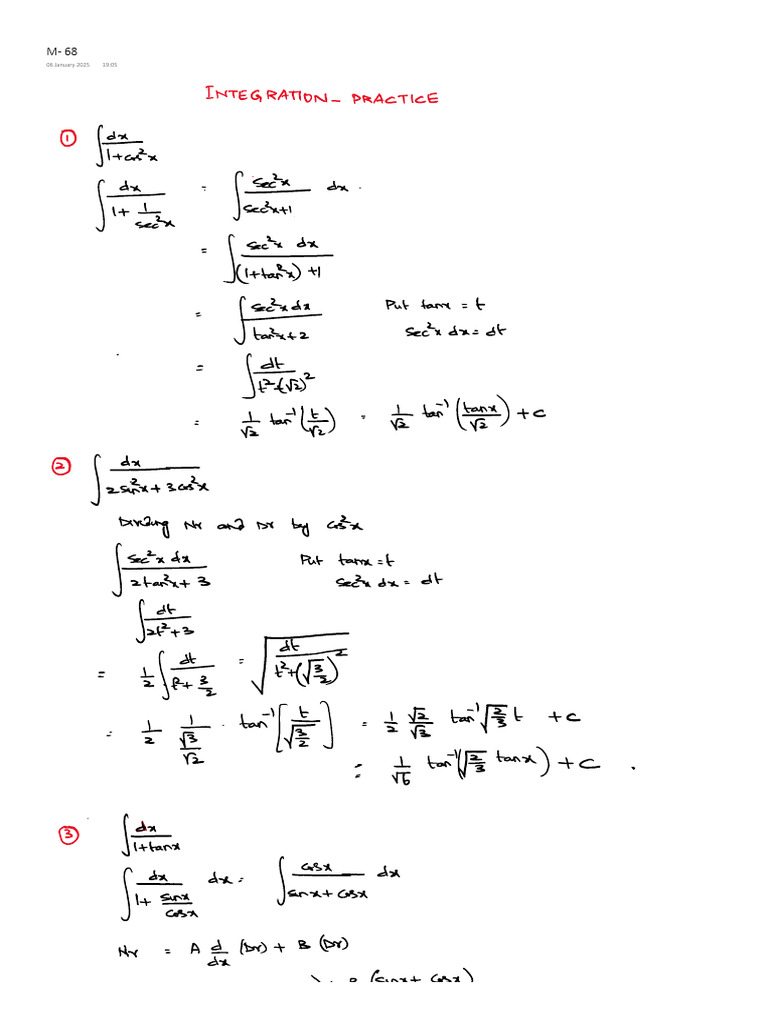 M- 68
06 January 2025 19:05
INTEGRATION- PRACTICE
① ∫ dx / (1+cos²x)
∫ dx / (1 + 1/sec²x) = ∫ sec²x / (sec²x+1) dx .
= ∫ sec²x dx / ((1+tan²x) +1)
= ∫ sec²x dx / (tan²x+2) Put tanx = t
sec²x dx = dt
= ∫ dt / (t²+(√2)²)
= 1/√2 tan⁻¹(t/√2) = 1/√2 tan⁻¹(tanx/√2) + C
② ∫ dx / (2sin²x + 3cos²x)
Dividing Nr and Dr by cos²x
∫ sec²x dx / (2tan²x + 3) Put tanx = t
sec²x dx = dt
∫ dt / (2t²+3)
= 1/2 ∫ dt / (t² + 3/2) = √ dt / (t²+(√(3/2))²)
= 1/2 1/(√3/√2) . tan⁻¹[t/√(3/2)] = 1/2 √2/√3 tan⁻¹√(2/3) t + C
= 1/√6 tan⁻¹(√(2/3) tanx) + C .
③ ∫ dx / (1+tanx)
∫ dx / (1 + sinx/cosx) dx = ∫ cosx / (sinx + cosx) dx
Nr = A d/dx (Dr) + B (Dr)
(sinx + cosx)